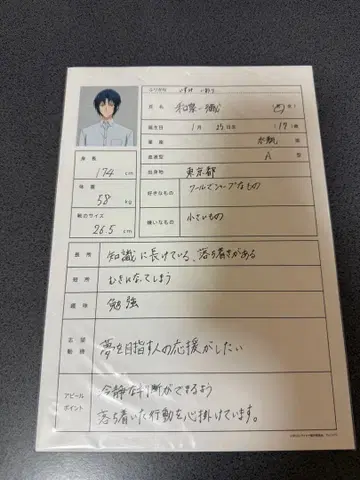 ふりがな いずみ いおり
氏名 和泉一織 男
誕生日 1月25日生 17歳
星座 水瓶座
血液型 A型
出身地 東京都
身長 174 cm
体重 58 kg
靴のサイズ 26.5 cm
好きなもの クールでシャープなもの
嫌いなもの 小さいもの
長所 知識に長けている、落ち着きがある
短所 むきになってしまう
趣味 勉強
志望動機 夢を目指す人の応援がしたい
アピールポイント 冷静な判断ができるよう
落ち着いた行動を心掛けています。